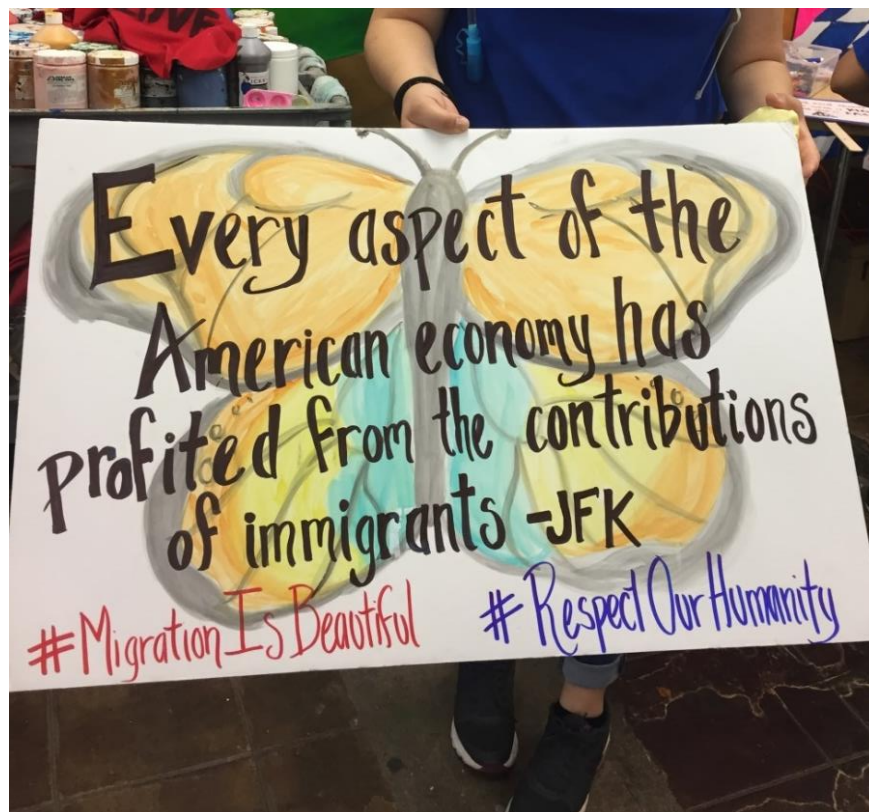 Every aspect of the
American economy has
profited from the contributions
of immigrants -JFK
#MigrationIsBeautiful
#RespectOurHumanity